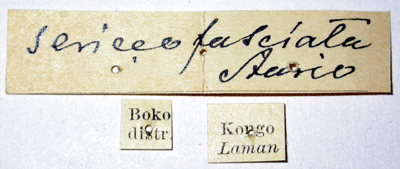 sericeofasciata
Auriv
Boko
distr.
Kongo
Laman